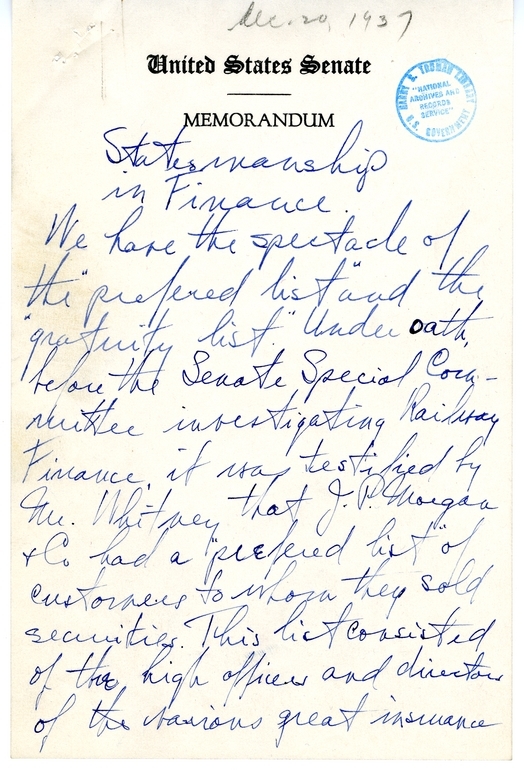 Dec. 20, 1937
United States Senate
MEMORANDUM
HARRY S. TRUMAN LIBRARY
"NATIONAL
ARCHIVES AND
RECORDS
SERVICE"
U.S. GOVERNMENT
Statesmanship
in Finance.
We have the spectacle of
the "prefered list" and the
"gratuity list." Under oath,
before the Senate Special Com-
mittee investigating Railway
Finance, it was testified by
Mr. Whitney that J. P. Morgan
& Co had a "prefered list" of
customers to whom they sold
securities. This list consisted
of the high officers and directors
of the various great insurance